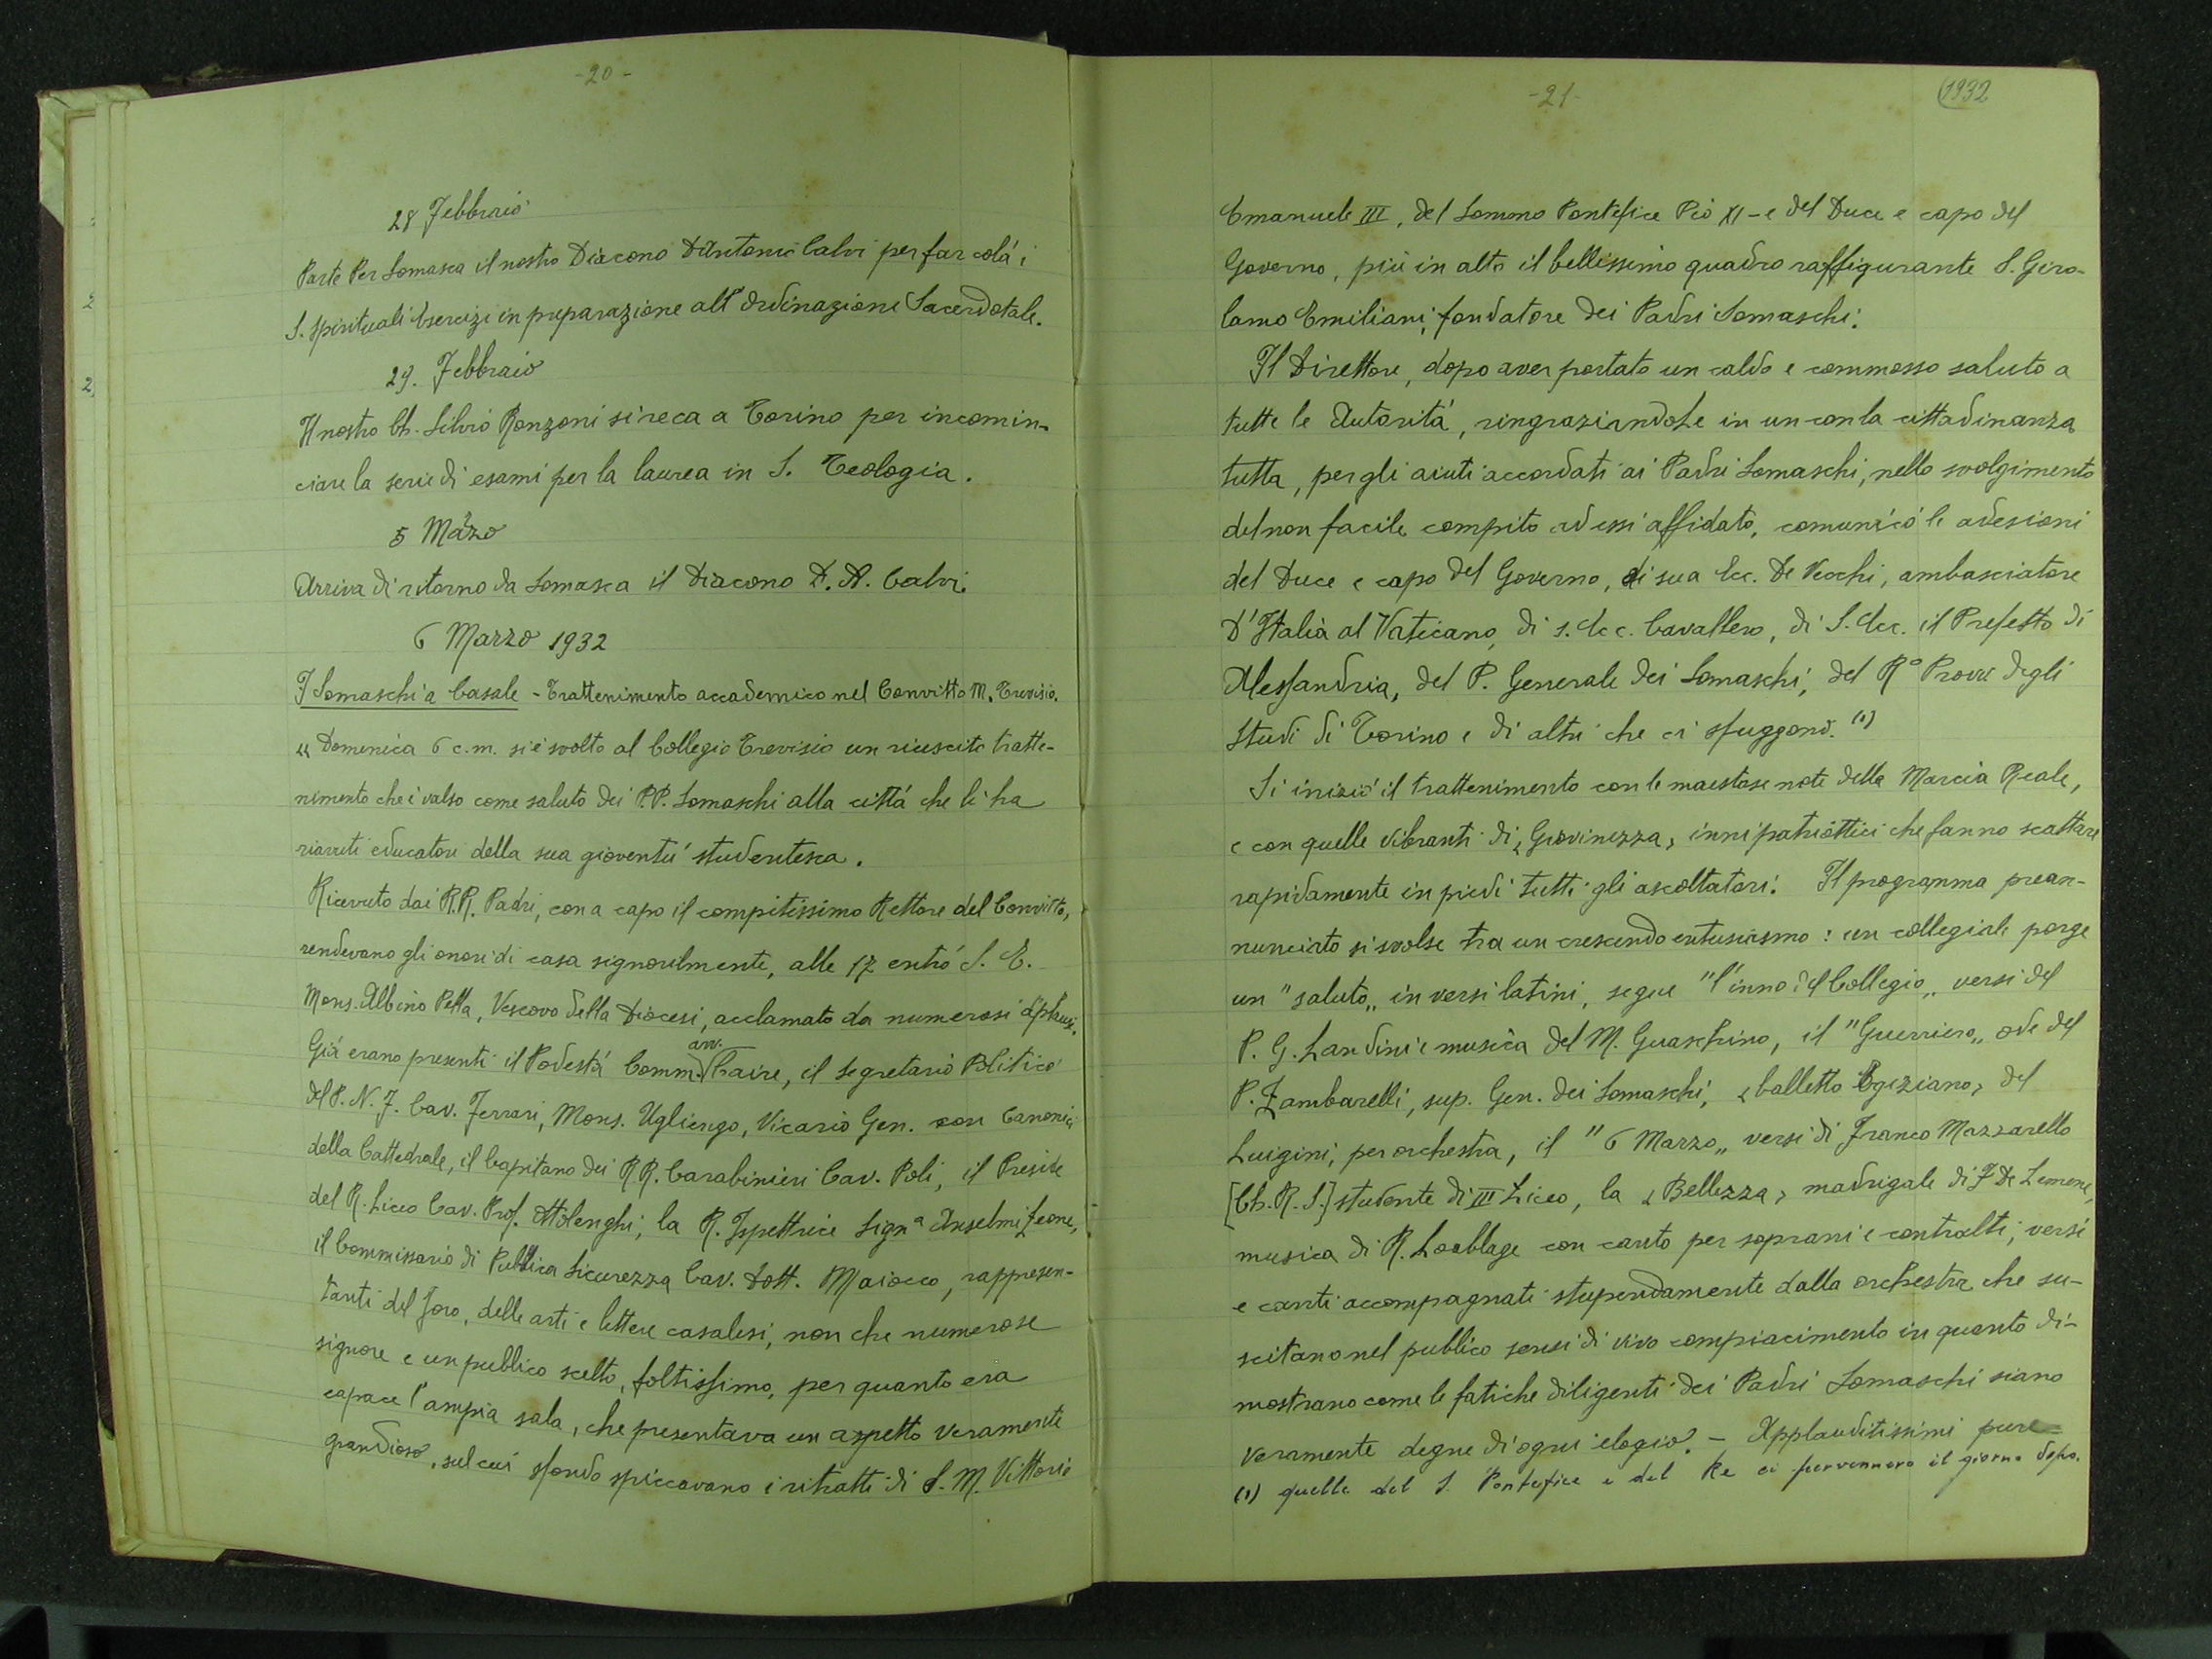 -20-
28 Febbraio
Parte Per Somasca il nostro Diacono D. Antonio Calvi per far colá i
S. Spirituali Esercizi in preparazione all'Ordinazione Sacerdotale.
29. Febbraio
Il nostro Ch. Silvio Ronzoni si reca a Torino per incomin-
ciare la serie di esami per la laurea in S. Teologia.
5 Marzo
Arriva di ritorno da Somasca il Diacono D. A. Calvi.
6 Marzo 1932
I Somaschi a Casale - Trattenimento accademico nel Convitto M. Trevisio.
" Domenica 6 c.m. si è svolto al Collegio Trevisio un riuscito tratte-
nimento che è valso come saluto dei P.P. Somaschi alla cittá che li ha
riavuti educatori della sua gioventú studentesca.
Ricevuto dai R.R. Padri, con a capo il compitissimo Rettore del Convitto,
rendevano gli onori di casa signorilmente, alle 17 entró S. E.
Mons. Albino Pella, Vescovo della Diocesi, acclamato da numerosi applausi.
Giá erano presenti il Podestá Comm. avv. Caire, il segretario Politico
del P. N. F. Cav. Ferrari, Mons. Ugliengo, Vicario Gen. con Canonici
della Cattedrale, il Capitano dei RR. Carabinieri Cav. Poli, il Preside
del R. Liceo Cav. Prof. Ottolenghi, la R. Ispettrice Sign.a Anselmi Leone,
il Commissario di Pubblica Sicurezza Cav. Dott. Maiocco, rappresen-
tanti del Foro, delle arti e lettere casalesi, non che numerose
signore e un pubblico scelto, foltissimo, per quanto era
capace l'ampia sala, che presentava un aspetto veramente
grandioso, sul cui sfondo spiccavano i ritratti di S. M. Vittorio
-21-
1932
Emanuele III, del Sommo Pontefice Pio XI - e del Duce e capo del
Governo, piú in alto il bellissimo quadro raffigurante S. Giro-
lamo Emiliani, fondatore dei Padri Somaschi.
Il Direttore, dopo aver portato un caldo e commosso saluto a
tutte le Autoritá, ringraziandoLe in un con la cittadinanza
tutta, per gli aiuti accordati ai Padri Somaschi, nello svolgimento
del non facile compito ad essi affidato, comunicó le adesioni
del Duce e capo del Governo, di sua Ecc. De Vecchi, ambasciatore
D'Italia al Vaticano, di s. Ecc. Cavallero, di S. Ecc. il Prefetto di
Alessandria, del P. Generale dei Somaschi, del R° Provv. degli
Studi di Torino e di altri che ci sfuggono. (1)
Si inizió il trattenimento con le maestose note della Marcia Reale,
e con quelle vibranti di "Giovinezza", inni patriottici che fanno scattare
rapidamente in piedi tutti gli ascoltatori. Il programma prean-
nunciato si svolse tra un crescendo entusiasmo: un collegiale porge
un "saluto" in versi latini, segue "l'inno del Collegio" versi del
P. G. Landini e musica del M. Guaschino, il "Guerriero" ode del
P. Zambarelli, sup. Gen. dei Somaschi, "balletto Egiziano" del
Luigini, per orchestra, il "6 Marzo" versi di Franco Mazzarello
[Ch. R. S.] studente di III Liceo, la "Bellezza" madrigale di F. De Lemene,
musica di R. Loablage con canto per soprani e contralti; versi
e canti accompagnati stupendamente dalla orchestra che su-
scitano nel pubblico sensi di vivo compiacimento in quanto di-
mostrano come le fatiche diligenti dei Padri Somaschi siano
veramente degne di ogni elogio. - Applauditissimi pure
(1) quelle del S. Pontefice e del Re ci pervennero il giorno dopo.